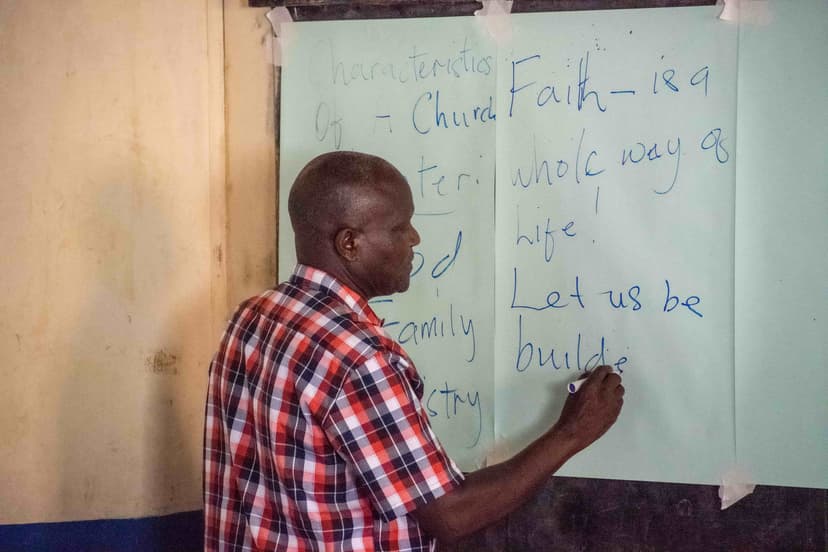 Characteristics
Of A Church
teri
Family
istry
Faith - is a
whole way of
life!
Let us be
builde